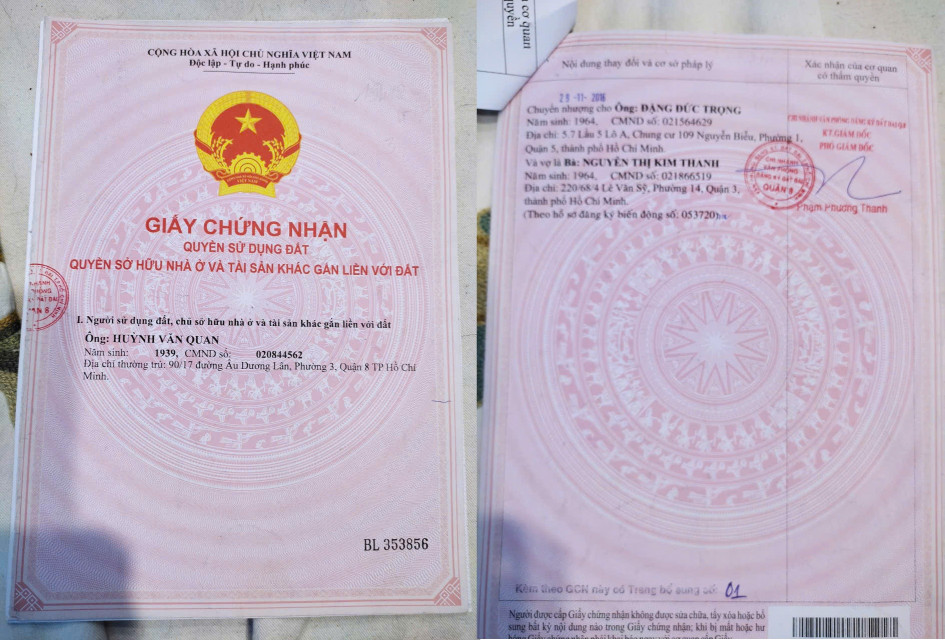 CỘNG HÒA XÃ HỘI CHỦ NGHĨA VIỆT NAM
Độc lập - Tự do - Hạnh phúc
GIẤY CHỨNG NHẬN
QUYỀN SỬ DỤNG ĐẤT
QUYỀN SỞ HỮU NHÀ Ở VÀ TÀI SẢN KHÁC GẮN LIỀN VỚI ĐẤT
I. Người sử dụng đất, chủ sở hữu nhà ở và tài sản khác gắn liền với đất
Ông: HUỲNH VĂN QUAN
Năm sinh: 1939, CMND số: 020844562
Địa chỉ thường trú: 90/17 đường Âu Dương Lân, Phường 3, Quận 8 TP Hồ Chí
Minh.
BL 353856
cơ quan
quyền
Nội dung thay đổi và cơ sở pháp lý
Xác nhận của cơ quan
có thẩm quyền
28-11-2016
Chuyển nhượng cho Ông: ĐẶNG ĐỨC TRỌNG
Năm sinh: 1964, CMND số: 021564629
Địa chỉ: 5.7 Lầu 5 Lô A, Chung cư 109 Nguyễn Biểu, Phường 1,
Quận 5, thành phố Hồ Chí Minh.
Và vợ là Bà: NGUYỄN THỊ KIM THANH
Năm sinh: 1964, CMND số: 021866519
Địa chỉ: 220/68/4 Lê Văn Sỹ, Phường 14, Quận 3,
thành phố Hồ Chí Minh.
(Theo hồ sơ đăng ký biến động số: 053720)
CHI NHÁNH VĂN PHÒNG ĐĂNG KÝ ĐẤT ĐAI Q8
KT.GIÁM ĐỐC
PHÓ GIÁM ĐỐC
CHI NHÁNH
VĂN PHÒNG
ĐĂNG KÝ ĐẤT ĐAI
QUẬN 8
Phạm Phương Thanh
Kèm theo GCN này có Trang bổ sung số: 01
Người được cấp Giấy chứng nhận không được sửa chữa, tẩy xóa hoặc bổ
sung bất kỳ nội dung nào trong Giấy chứng nhận; khi bị mất hoặc hư